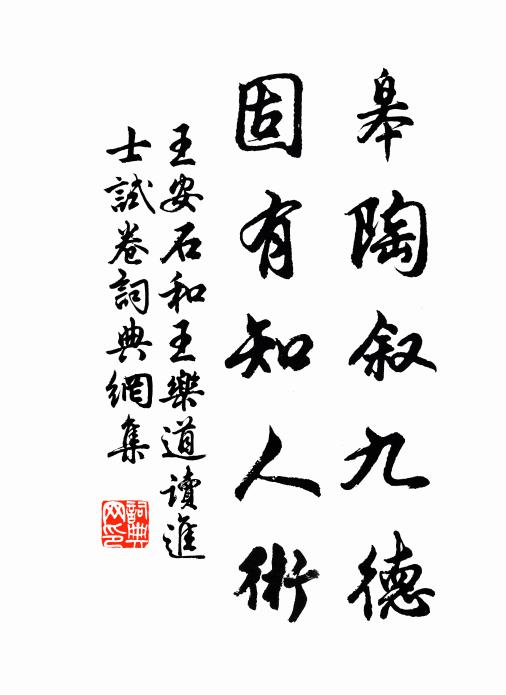 皋陶叙九德
固有知人術
王安石和王樂道讀進
士試卷詞典網集
詞典
网印